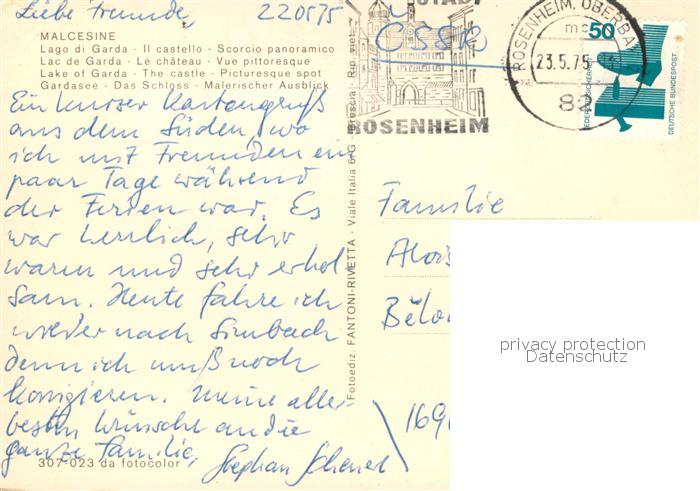 Liebe Freunde, 220575
MALCESINE
Lago di Garda - Il castello - Scorcio panoramico
Lac de Garda - Le château - Vue pittoresque
Lake of Garda - The castle - Picturesque spot
Gardasee - Das Schloss - Malerischer Ausblick
Ein kurzer Kartengruß
aus dem Süden, wo
ich mit Freunden ein
paar Tage während
der Ferien war. Es
war herrlich, sehr
warm und sehr erhol
sam. Heute fahre ich
wieder nach Simbach
denn ich muß noch
korrigieren. Meine aller-
besten Wünsche an die
ganze Familie,
Stephan
307-023 da fotocolor
Fotoediz. FANTONI-RIVETTA - Viale Italia 6/G - Brescia - Rip. viet.
STADT
ROSENHEIM
ČSSR
ROSENHEIM, OBERBAY
mc
23.5.75
82
50
JEDERZEIT SICHERHEIT
DEUTSCHE BUNDESPOST
Familie
Alois
Bělo
169
privacy protection
Datenschutz